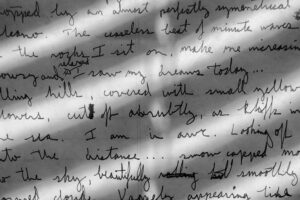 topped by an almost perfectly symmetrical
volcano. The ceaseless beat of minute waves
the rocks I sit on, make me increasing
relaxed
and I saw my dreams today...
lling hills, covered with small yellow
lowers, cut off abruptly, as cliffs in
the sea. I am in awe. Looking off
into the distance.... snow capped mo
to the sky, beautifully smoothly
Vaguely appearing like